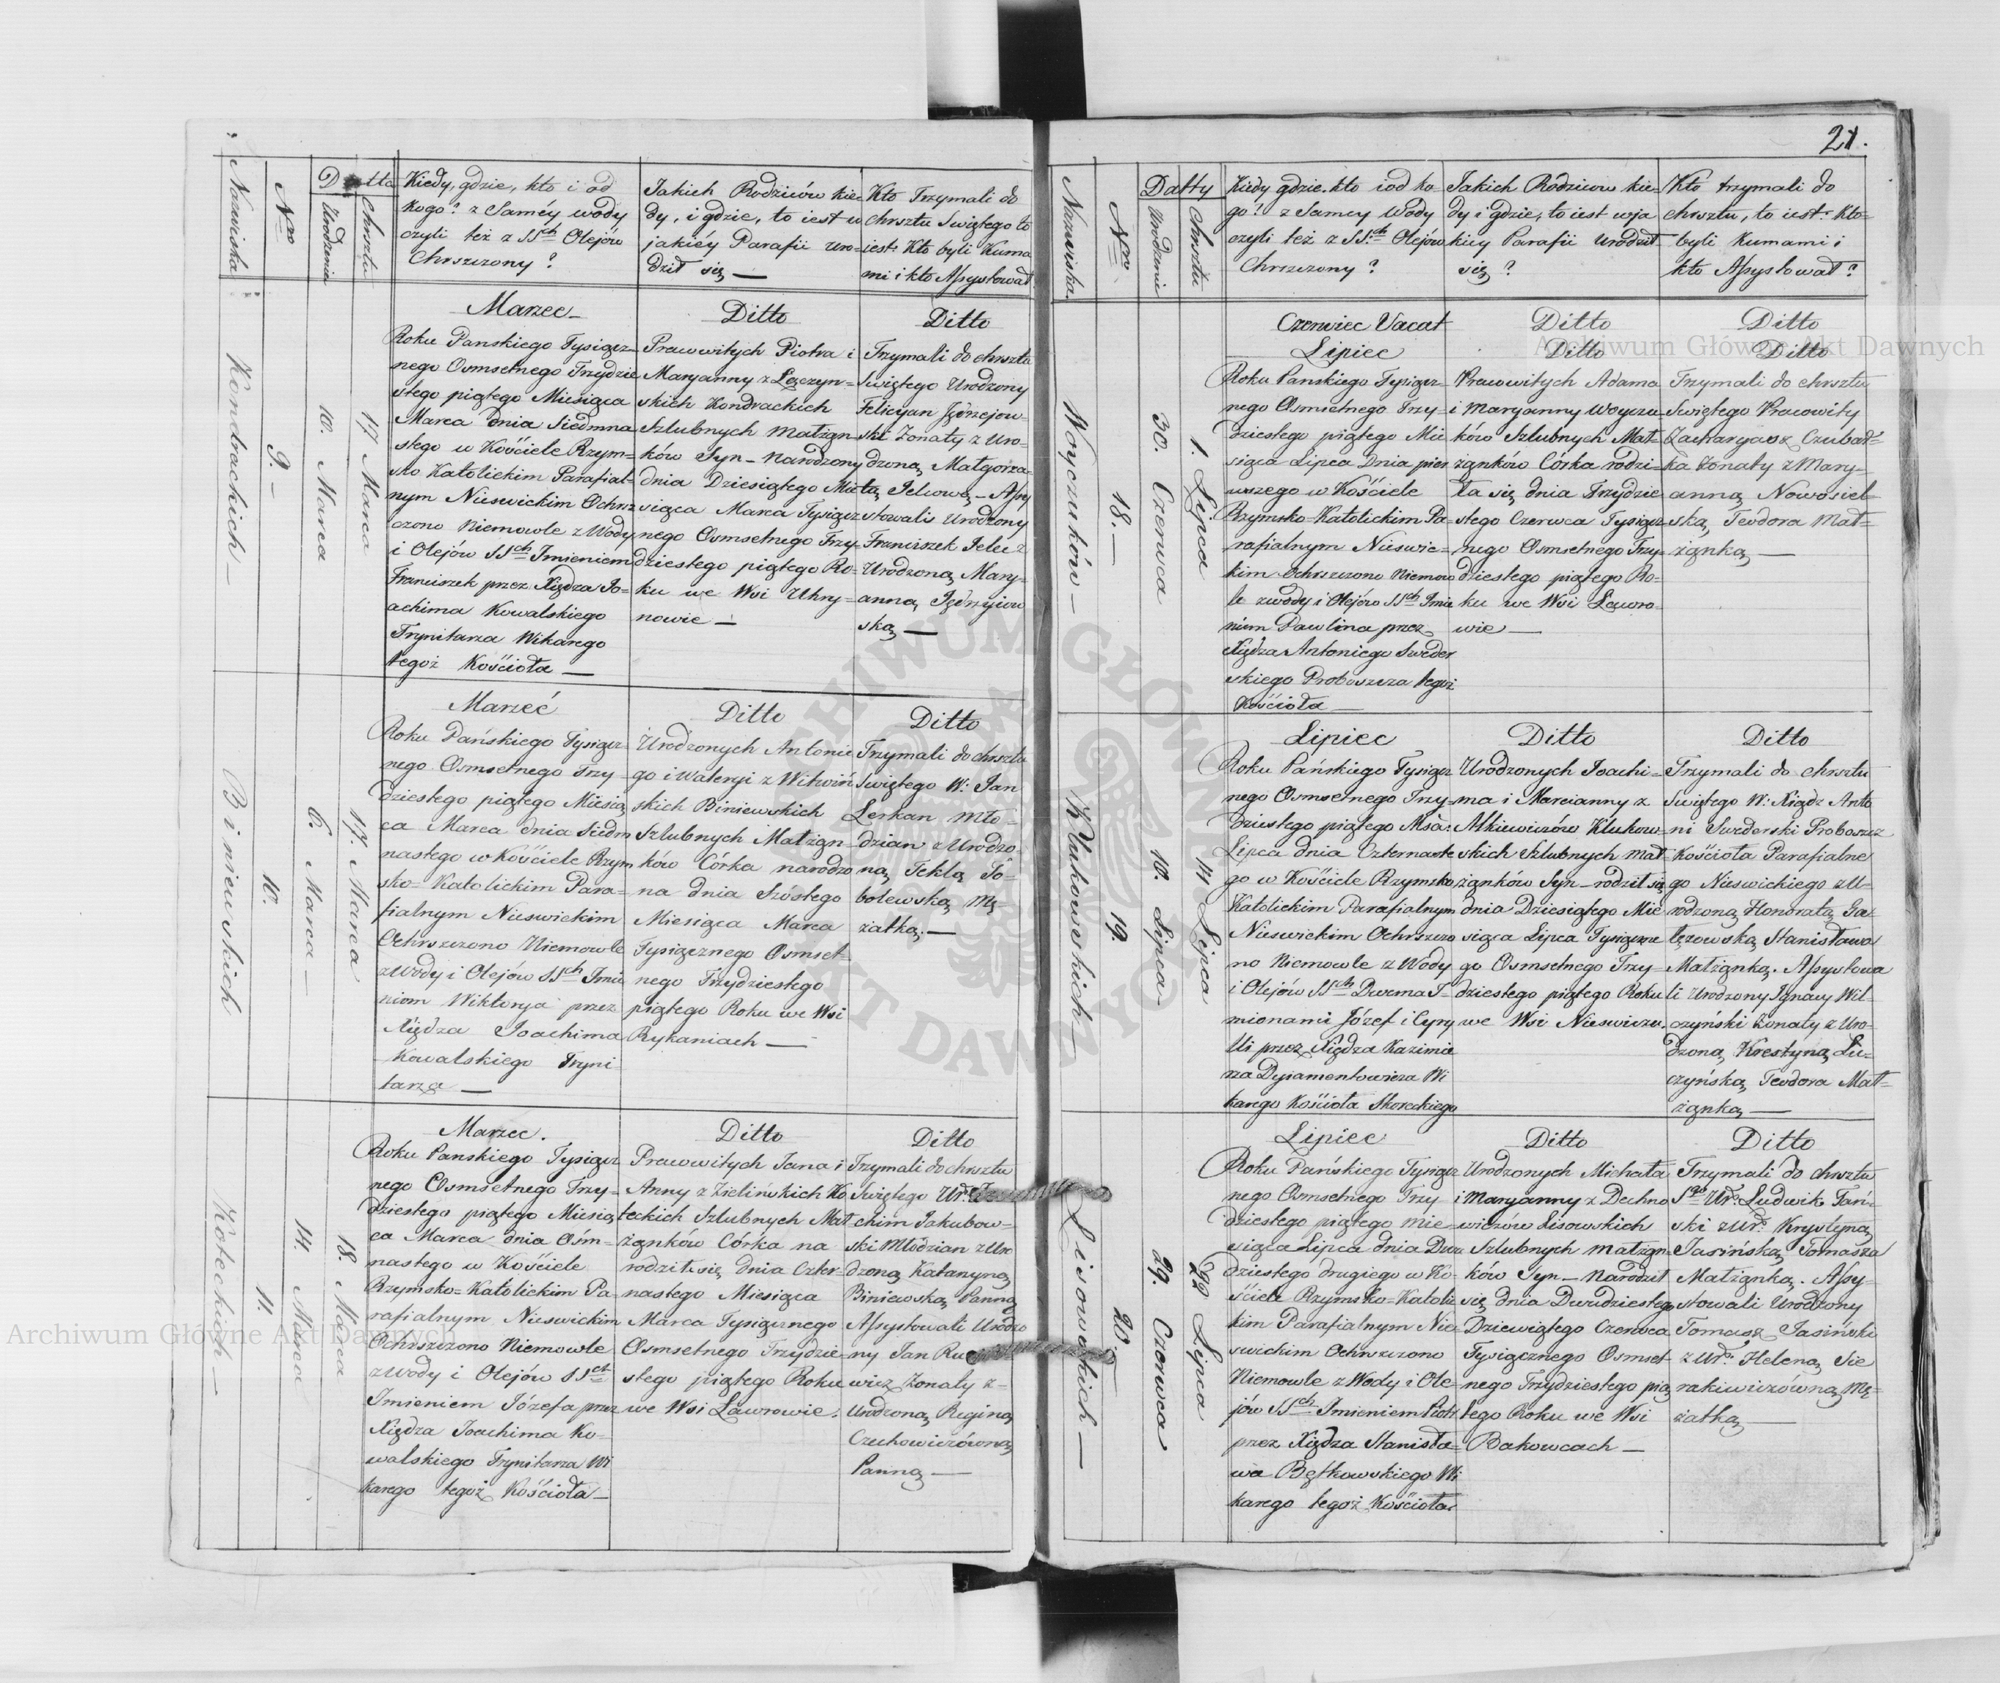 Nazwiska
Nro
Datta
Urodzenia
Chrztu
Kiedy, gdzie, kto i od
kogo? z Saméy wody
czyli też z SSch Olejów
Chrzczony?
Jakich Rodziców kie-
dy, i gdzie, to iest w
jakiéy Parafii uro-
dził się —
Kto Trzymali do
chrsztu Swiętego to
iest: Kto byli Kuma
mi i kto Assystował
Kondrackich —
9. —
10. Marca
17 Marca
Marzec —
Roku Panskiego Tysiącz-
nego Osmsetnego Trzydzie
stego piątego Miesiąca
Marca dnia Siedmna
stego w Kościele Rzym-
sko Katolickim Parafial-
nym Nieswickim Ochrz
czono Niemowle z Wody
i Olejów SSch Imieniem
Franciszek przez Xiędza Jo-
achima Kowalskiego
Trynitarza Wikarego
tegoż Kościoła —
Ditto
Pracowitych Piotra i
Maryanny z Leszczyn-
skich Kondrackich
Szlubnych Małżąn
ków Syn — Narodzony
dnia Dziesiątego Mie
siąca Marca Tysiącz
nego Osmsetnego Trzy-
dziestego piątego Ro-
ku we Wsi Uhry-
nowie —
Ditto
Trzymali do chrsztu
Swiętego Urodzony
Felicyan Jędrzejow-
ski Zonaty z Uro-
dzoną Małgorza-
tą Pelcową — Assy
stowali Urodzony
Franciszek Pelc z
Urodzoną Mary-
anną Jędrzyiow
ską —
Biniewskich
10.
6. Marca —
17. Marca
Marzeć
Roku Pańskiego Tysiącz-
nego Osmsetnego Trzy-
dziestego piątego Miesią
ca Marca dnia Siedm
nastego w Kościele Rzym
sko-Katolickim Para-
fialnym Nieswickim
Ochrzczono Niemowle
z Wody i Olejów SSch Imie
niom Wiktorya przez
Xiędza Joachima
Kowalskiego Tryni
tarza —
Ditto
Urodzonych Antonie
go i Waleryi z Witwiń
skich Biniewskich
Szlubnych Małżąn-
ków Córka narodzo
na dnia Szóstego
Miesiąca Marca
Tysiącznego Osmset-
nego Trzydziestego
piątego Roku we Wsi
Rykaniach —
Ditto
Trzymali do chrsztu
Swiętego W: Jan
Leskan Mło-
dzian z Urodzo
ną Teklą So-
bolewską Mę
żatką; —
Koteckich —
11.
14. Marca
18. Marca
Marzec.
Roku Panskiego Tysiącz
nego Osmsetnego Trzy-
dziestego piątego Miesią
ca Marca dnia Osm-
nastego w Kościele
Rzymsko-Katolickim Pa-
rafialnym Nieswickim
Ochrzczono Niemowle
z Wody i Olejów SSch
Imieniem Józefa przez
Xiędza Joachima Ko-
walskiego Trynitarza Wi
karego tegoż Kościoła —
Ditto
Pracowitych Jana i
Anny z Zielińskich Ko
teckich Szlubnych Mał
żąnków Córka na
rodziła się dnia Czter-
nastego Miesiąca
Marca Tysiącznego
Osmsetnego Trzydzie-
stego piątego Roku
we Wsi Ławrowie.
Ditto
Trzymali do chrsztu
Swiętego Ur:
chim Jakubow-
ski Młodzian z Uro
dzoną Katarzyną
Biniewską Panną
Assystowali Urodzo
ny Jan
wicz Zonaty z-
Urodzoną Reginą
Czechowiczówną
Panną —
21.
Nazwiska
Nro
Datty
Urodzenia
Chrsztu
Kiedy gdzie, kto iod ko
go? z Samey Wody
czyli też z SS.ch Olejów
Chrzczony?
Jakich Rodziców kie-
dy i gdzie, to iest w ja
kiey Parafii Urodził
się?
Kto trzymali do
chrsztu, to iest: kto
byli Kumami i
kto Assystował?
Woyczuków —
18. —
30. Czerwca
1. Lipca
Czerwiec Vacat
Lipiec
Roku Panskiego Tysiącz
nego Osmsetnego Trzy-
dziestego piątego Mie
siąca Lipca Dnia pier
wszego w Kościele
Rzymsko-Katolickim Pa
rafialnym Nieswic-
kim Ochrzczono Niemow
le z wody i Olejów SSch Imie
niem Pawlina przez
Xiędza Antoniego Sweder
skiego Proboszcza tegoż
Kościoła —
Ditto
Ditto
Pracowitych Adama
i Maryanny Woyczu-
ków Szlubnych Mał-
żąnków Córka rodzi-
ła się dnia Trzydzie
stego Czerwca Tysiącz-
nego Osmsetnego Trzy-
dziestego piątego Ro-
ku we Wsi Ławro-
wie —
Ditto
Ditto
Trzymali do chrsztu
Swiętego Pracowity
Zacharyasz Czubat-
ka Zonaty z Mary-
anną Nowosiel-
ską, Teodora Mał-
żąnką —
Klukowskich
19.
10. Lipca
14 Lipca
Lipiec
Roku Pańskiego Tysiącz
nego Osmsetnego Trzy-
dziestego piątego Msca:
Lipca dnia Czternaste
go w Kościele Rzymsko
Katolickim Parafialnym
Nieswickim Ochrzczo
no Niemowle z Wody
i Olejów SSch Dwoma I-
mionami Józef i Cyry
lli przez Xiędza Kazimie
rza Dyiamentowicza Wi
karego Kościoła Skoreckiego
Ditto
Urodzonych Joachi-
ma i Marcianny z
Ałkiewiczów Klukow-
skich Szlubnych Mał
żąnków Syn — rodził się
dnia Dziesiątego Mie
siąca Lipca Tysiączne
go Osmsetnego Trzy-
dziestego piątego Roku
we Wsi Nieswiczu.
Ditto
Trzymali do chrsztu
Swiętego W: Xiądz Anto
ni Swederski Proboszcz
Kościoła Parafialne
go Nieswickiego z U-
rodzoną Honoratą Ga
łęzowską, Stanisława
Małżąnką. Assystowa
li Urodzony Ignacy Wil
czyński Zonaty z Uro-
dzoną Krestyną Lu-
czyńską Teodora Mał-
żąnką —
Lisowskich —
20.
29. Czerwca
22 Lipca
Lipiec
Roku Pańskiego Tysiącz
nego Osmsetnego Trzy
dziestego piątego Mie-
siąca Lipca dnia Dwu
dziestego drugiego w Ko-
ściele Rzymsko-Katolic
kim Parafialnym Nie-
swickim Ochrzczono
Niemowle z Wody i Ole-
jów SSch Imieniem Piotr
przez Xiędza Stanisła-
wa Bętkowskiego Wi
karego tegoż Kościoła.
Ditto
Urodzonych Michała
i Maryanny z Dechno
wiczów Lisowskich
Szlubnych Małżąn-
ków Syn — Narodził
się dnia Dwudziestego
Dziewiątego Czerwca
Tysiącznego Osmset-
nego Trzydziestego pią
tego Roku we Wsi
Bakowcach —
Ditto
Trzymali do chrsztu
Sgo Ur: Ludwik Jań-
ski z Ur: Krystyną
Jasińską, Tomasza
Małżąnką. Assy-
stowali Urodzony
Tomasz Jasiński
z Ur: Heleną Sie
rakiewiczówną Mę-
żatką —
Archiwum Główne Akt Dawnych
Archiwum Główne Akt Dawnych
ARCHIWUM GŁÓWNE AKT DAWNYCH